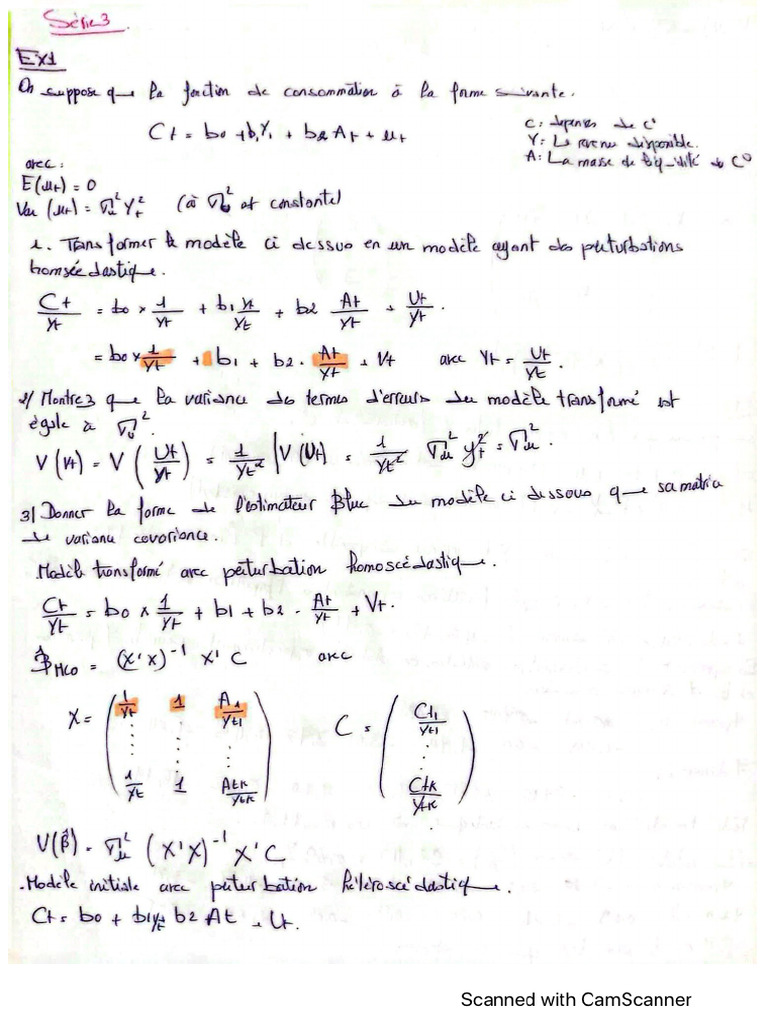 Série 3
EX1
On suppose que la fonction de consommation à la forme suivante.
Ct = b0 + b1Yt + b2 At + ut
C: depenses de C°
Y: Le revenu disponible.
A: La masse de liquidité de C°
avec:
E(ut) = 0
Var (ut) = σu² Yt² (où σu² est constante)
1. Transformer le modèle ci dessus en un modèle ayant des perturbations
homoscédastique.
Ct/yt = b0 × 1/yt + b1 yt/yt + b2 At/yt + Ut/yt.
= b0 × 1/yt + b1 + b2 . At/yt + Vt avec Vt = Ut/yt.
2/ Montrez que la variance des termes d'erreurs du modèle transformé est
égale à σu².
V (Vt) = V (Ut/yt) = 1/yt² V (Ut) = 1/yt² σu² yt² = σu².
3/ Donner la forme de l'estimateur Blue du modèle ci dessous que sa matrice
de variance covariance.
Modèle transformé avec perturbation homoscédastique.
Ct/yt = b0 × 1/yt + b1 + b2 . At/yt + Vt.
β̂MCO = (X'X)⁻¹ X'C avec
X = ( 1/yt 1 A1/yt1 ⋮ ⋮ ⋮ 1/yt 1 Atk/ytk ) C = ( Ct1/yt1 ⋮ Ctk/ytk )
V(β̂) = σu² (X'X)⁻¹ X'C
. Modèle initiale avec perturbation hétéroscédastique.
Ct = b0 + b1yt + b2 At + Ut.
Scanned with CamScanner